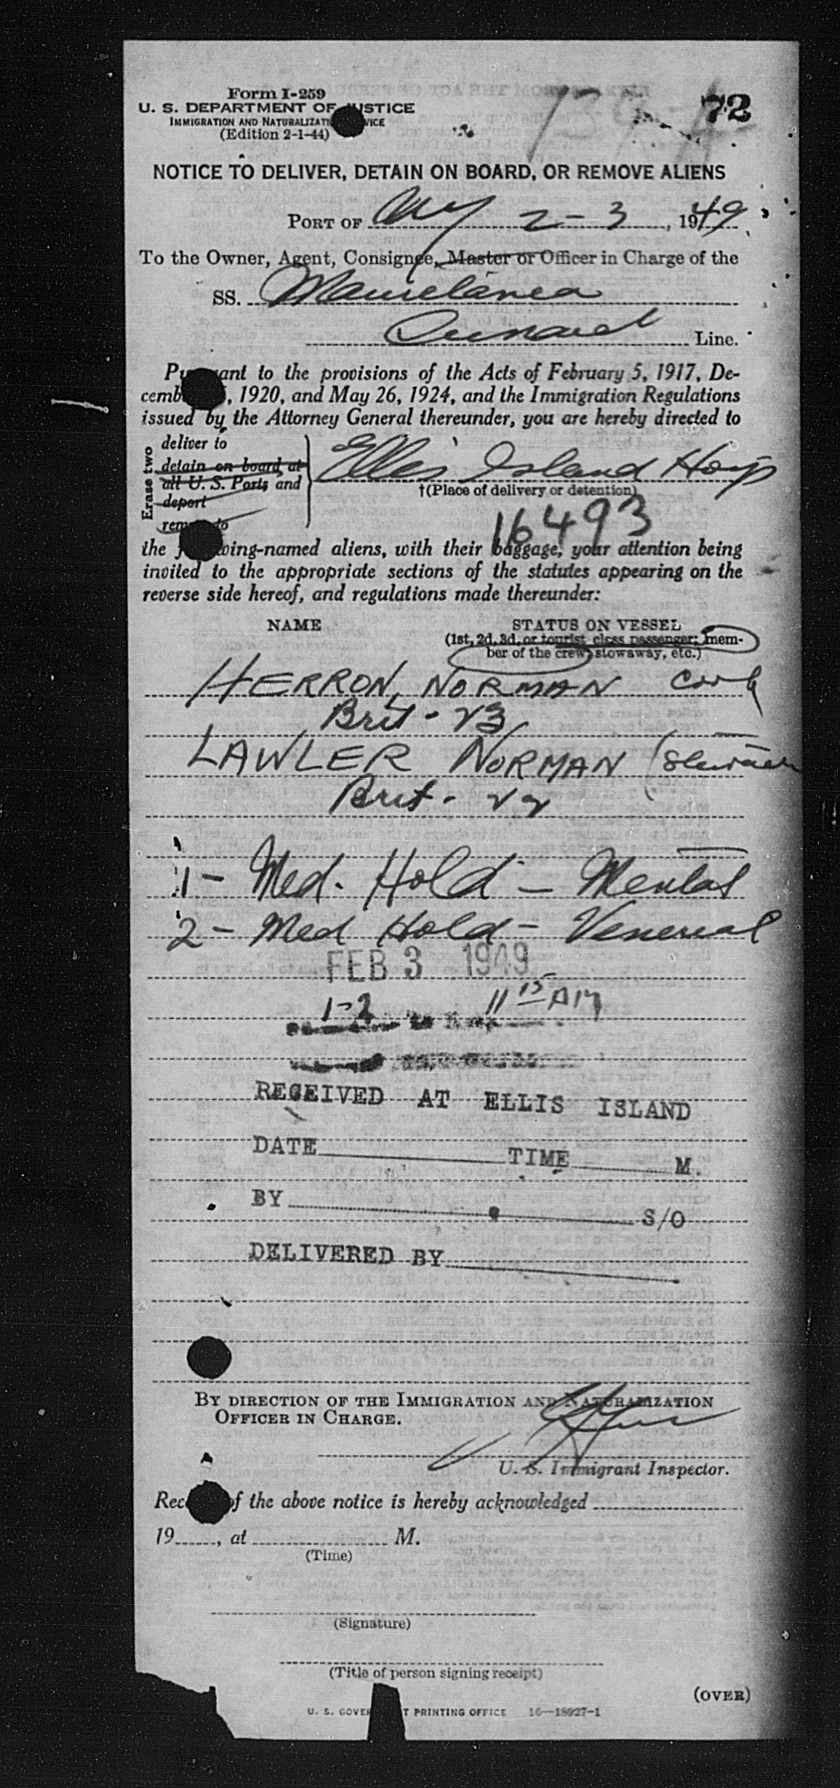 Form I-259 72
U. S. DEPARTMENT OF JUSTICE
IMMIGRATION AND NATURALIZATION SERVICE
(Edition 2-1-44)
NOTICE TO DELIVER, DETAIN ON BOARD, OR REMOVE ALIENS
PORT OF NY 2-3, 1949
To the Owner, Agent, Consignee, Master or Officer in Charge of the
SS. Mauretania
Cunard Line.
Pursuant to the provisions of the Acts of February 5, 1917, De-
cember , 1920, and May 26, 1924, and the Immigration Regulations
issued by the Attorney General thereunder, you are hereby directed to
Erase two
deliver to
detain on board at
all U. S. Ports and
deport
remove to
Ellis Island Hosp
†(Place of delivery or detention)
16493
the following-named aliens, with their baggage, your attention being
invited to the appropriate sections of the statutes appearing on the
reverse side hereof, and regulations made thereunder:
NAME STATUS ON VESSEL
(1st, 2d, 3d, or tourist class passenger; mem-
ber of the crew, stowaway, etc.)
HERRON, NORMAN Cook
Brit - 23
LAWLER NORMAN
Brit - 22
1 - Med. Hold - Mental
2 - Med Hold - Venereal
FEB 3 1949
1-2 11 15 AM
RECEIVED AT ELLIS ISLAND
DATE TIME M.
BY S/O
DELIVERED BY
BY DIRECTION OF THE IMMIGRATION AND NATURALIZATION
OFFICER IN CHARGE.
U. S. Immigrant Inspector.
Receipt of the above notice is hereby acknowledged
19......, at M.
(Time)
(Signature)
(Title of person signing receipt)
(OVER)
U. S. GOVERNMENT PRINTING OFFICE 16—18927-1